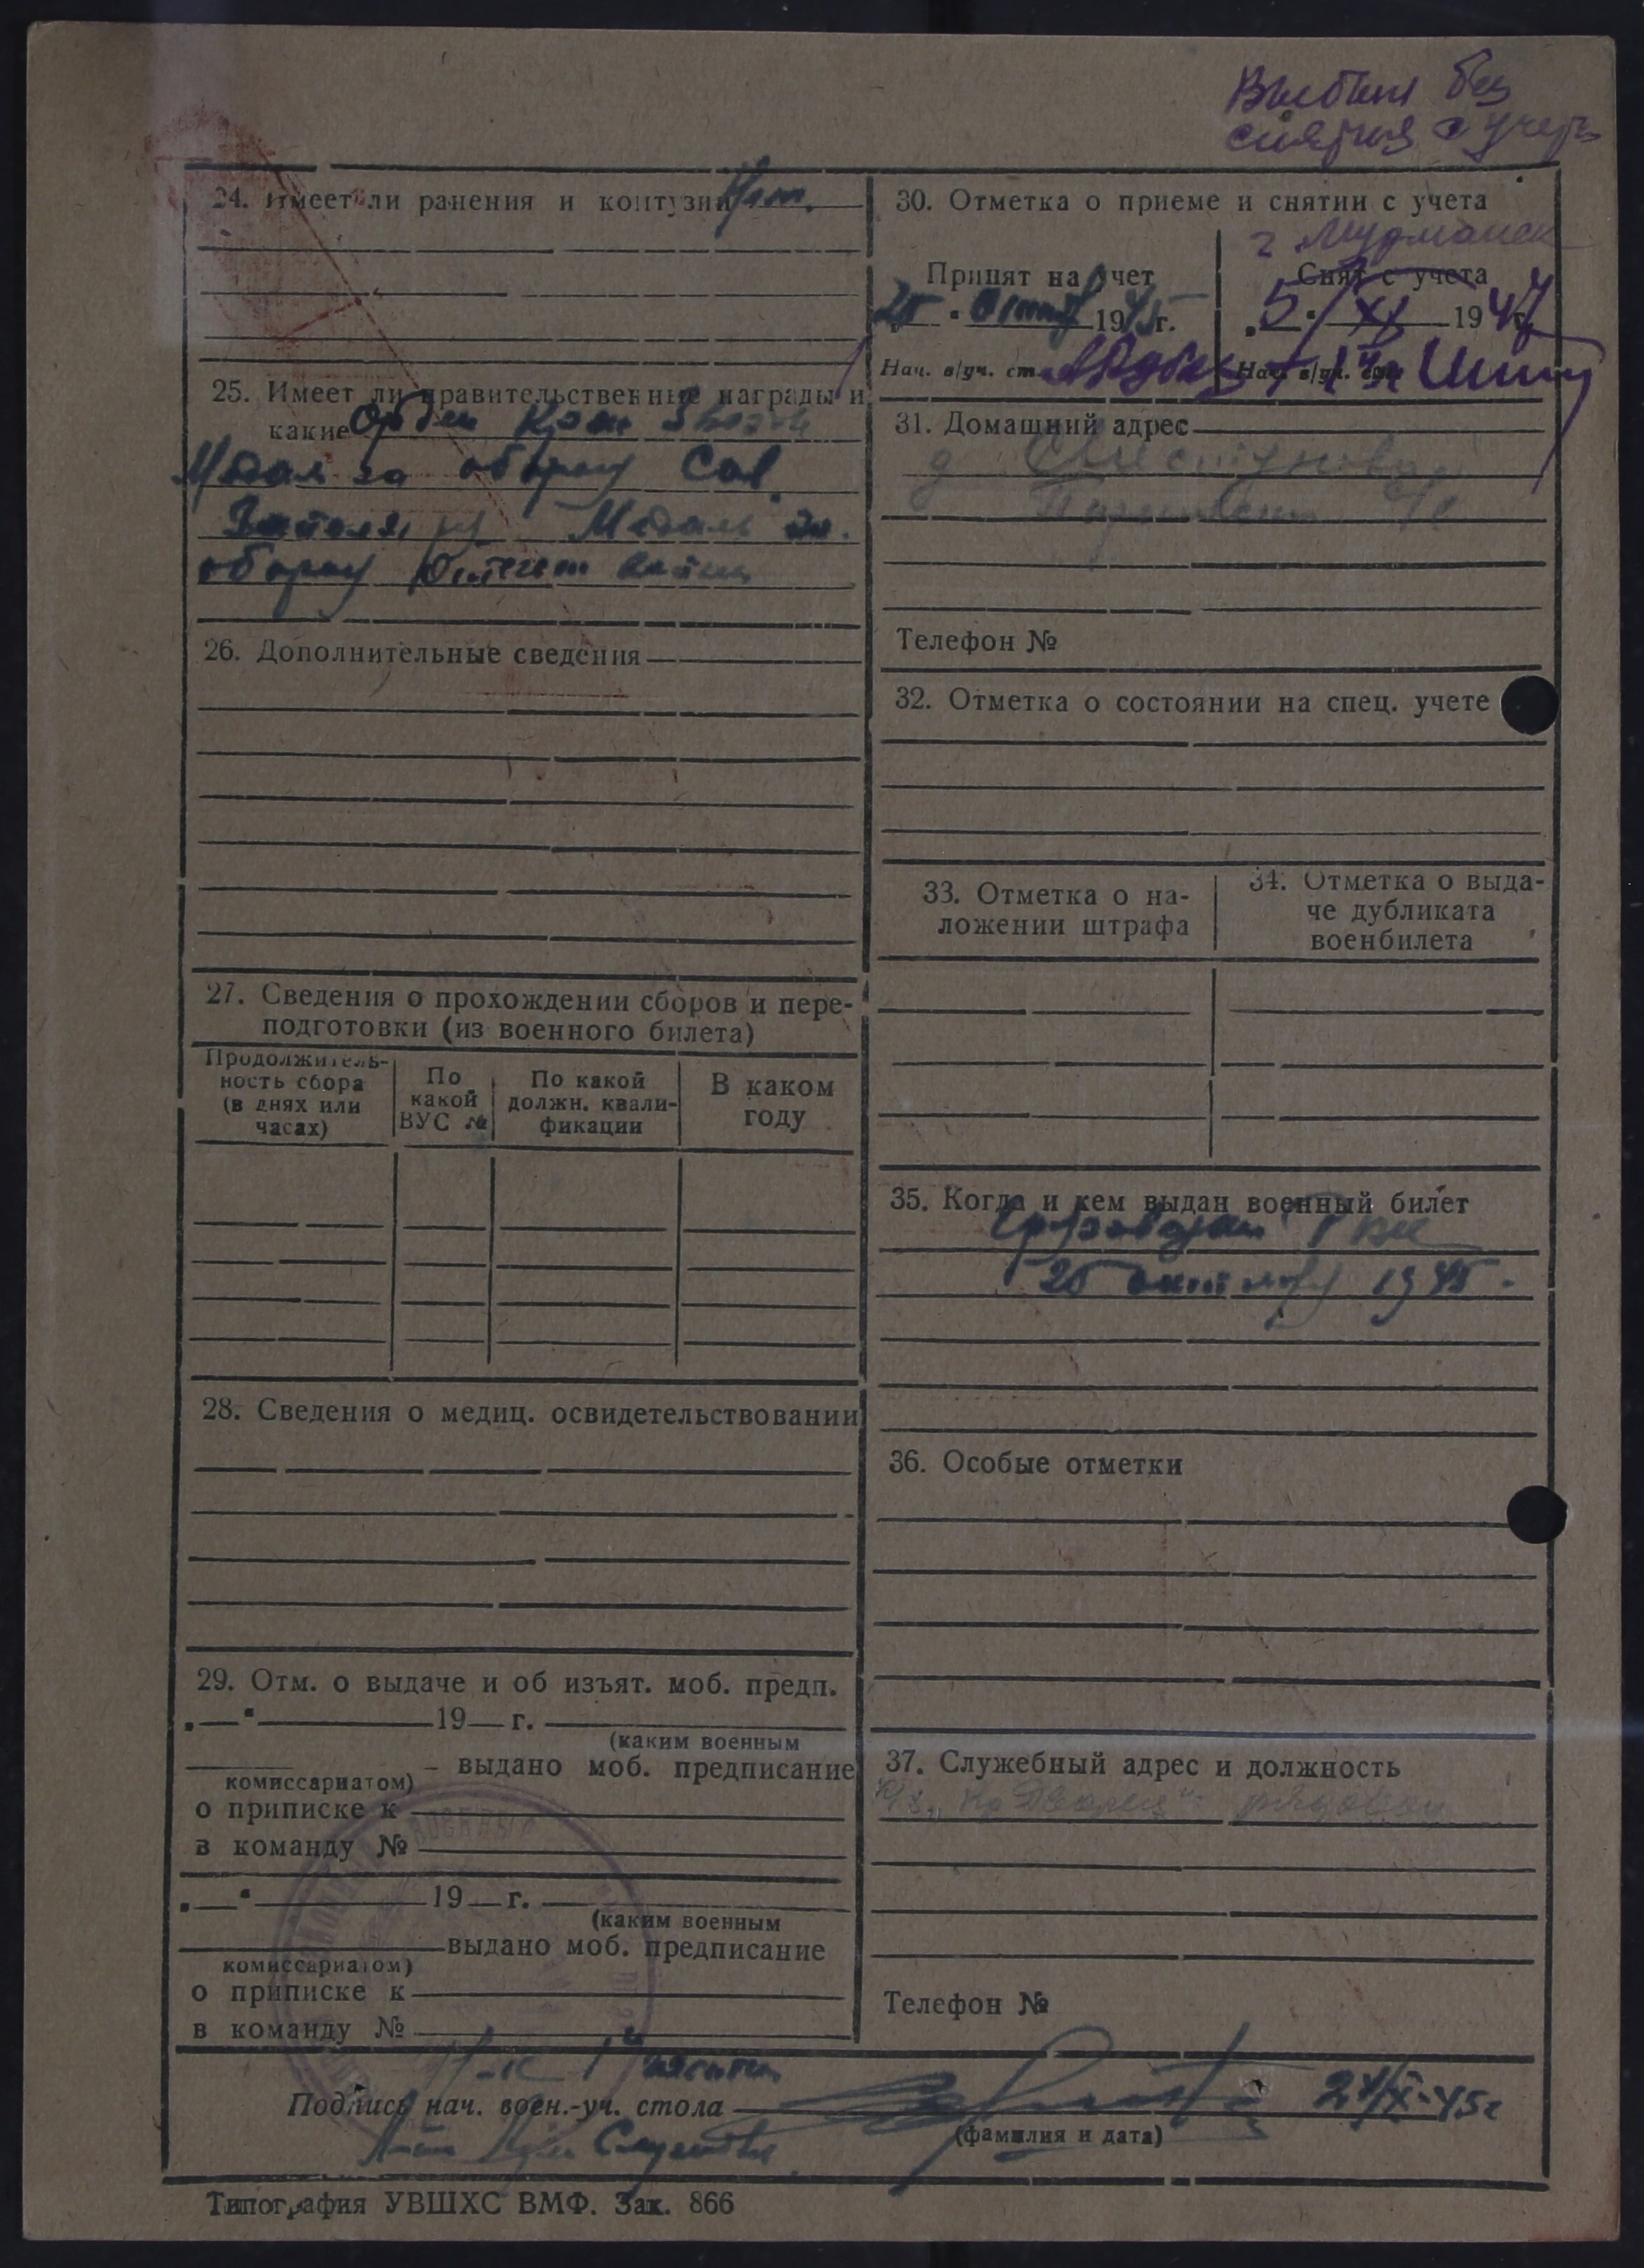 Выбыл без
снятия с учета
24. Имеет ли ранения и контузии Нет.
25. Имеет ли правительственные награды и
какие Орден Крас Звезды
Медаль за оборону Сов.
Заполярья Медаль за
оборону
26. Дополнительные сведения
27. Сведения о прохождении сборов и пере-
подготовки (из военного билета)
Продолжитель-
ность сбора
(в днях или
часах)
По
какой
ВУС №
По какой
должн. квали-
фикации
В каком
году
28. Сведения о медиц. освидетельствовании
29. Отм. о выдаче и об изъят. моб. предп.
„ “ 19 г.
(каким военным
выдано моб. предписание
комиссариатом)
о приписке к
в команду №
„ “ 19 г.
(каким военным
выдано моб. предписание
комиссариатом)
о приписке к
в команду №
30. Отметка о приеме и снятии с учета
г. Мурманск
Принят на учет
25 “ 1945 г.
Нач. в/уч. ст.
Снят с учета
„ 5 “ XI 1947 г.
Нач. в/уч.
31. Домашний адрес
д
Телефон №
32. Отметка о состоянии на спец. учете
33. Отметка о на-
ложении штрафа
34. Отметка о выда-
че дубликата
военбилета
35. Когда и кем выдан военный билет
РВК
25 октября 1945
36. Особые отметки
37. Служебный адрес и должность
рядовой
Телефон №
Н-к 1й части
Подпись нач. воен.-уч. стола 24/IX-45г
(фамилия и дата)
Типография УВШХС ВМФ. Зак. 866